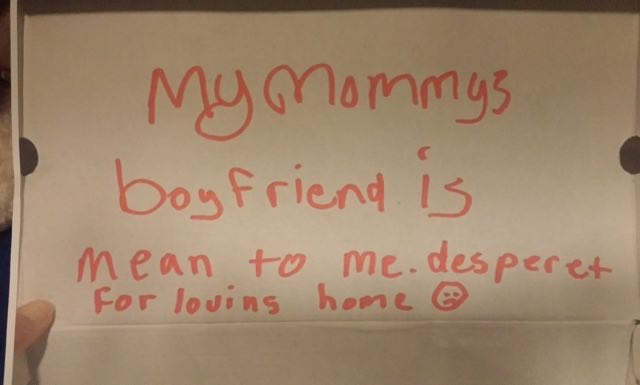 My Mommys
boyfriend is
mean to me. desperet
for loving home ☹